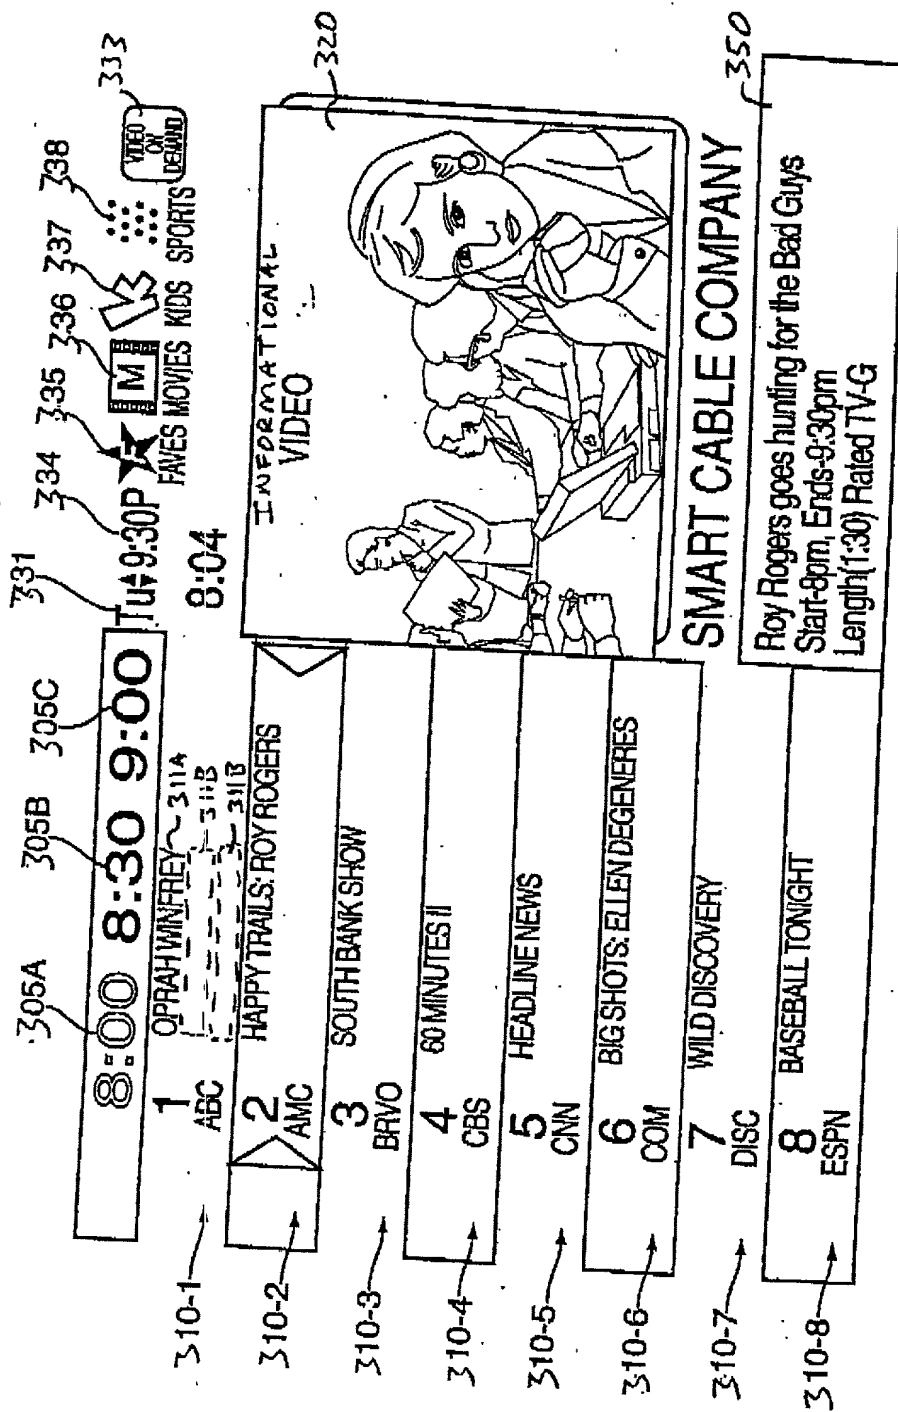 305A 305B 305C 331 334 335 336 337 338 333
8:00 8:30 9:00 Tu 9:30P F M VIDEO ON DEMAND
FAVES MOVIES KIDS SPORTS
8:04
310-1
1 ABC OPRAH WINFREY 311A
311B
311B
310-2
2 AMC HAPPY TRAILS: ROY ROGERS
310-3
3 BRVO SOUTH BANK SHOW
310-4
4 CBS 60 MINUTES II
310-5
5 CNN HEADLINE NEWS
310-6
6 COM BIG SHOTS: ELLEN DEGENERES
310-7
7 DISC WILD DISCOVERY
310-8
8 ESPN BASEBALL TONIGHT
320
INFORMATIONAL
VIDEO
SMART CABLE COMPANY
350
Roy Rogers goes hunting for the Bad Guys
Start-8pm, Ends-9:30pm
Length(1:30) Rated TV-G